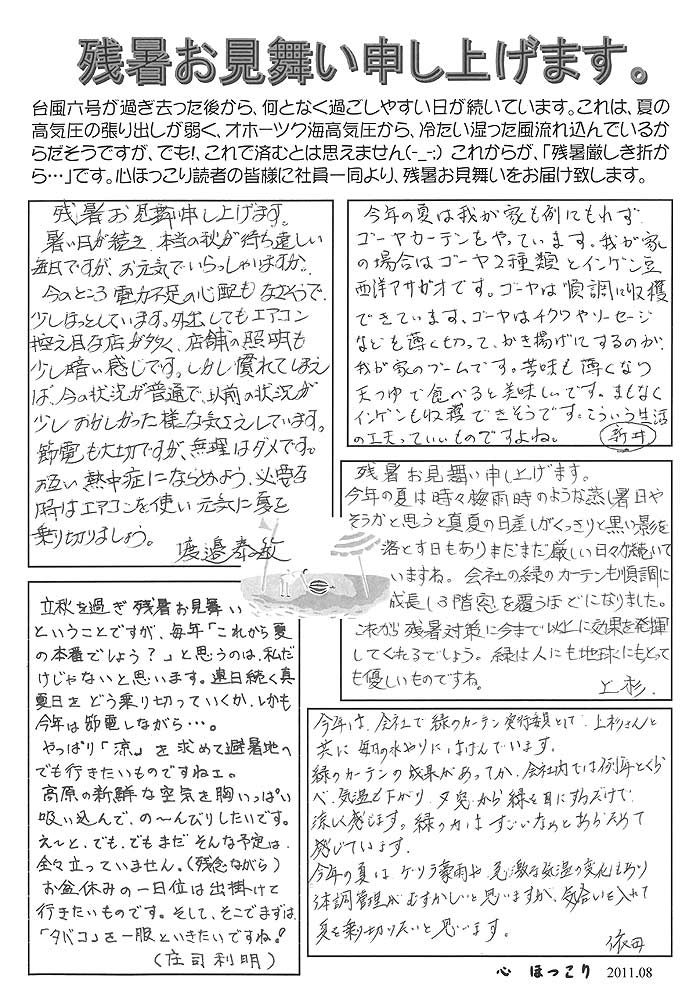 残暑お見舞い申し上げます。
台風六号が過ぎ去った後から、何となく過ごしやすい日が続いています。これは、夏の
高気圧の張り出しが弱く、オホーツク海高気圧から、冷たい湿った風流れ込んでいるか
らだそうですが、でも!、これで済むとは思えません(-_-;) これからが、「残暑厳しき折か
ら…」です。心ほっこり読者の皆様に社員一同より、残暑お見舞いをお届け致します。
残暑お見舞申し上げます。
暑い日が続き、本当の秋が待ち遠しい
毎日ですが、お元気でいらっしゃいますか。
今のところ電力不足の心配もなさそうで、
少しほっとしています。外出してもエアコン
控え目な店が多く、店舗の照明も
少し暗い感じです。しかし慣れてしまえ
ば、今の状況が普通で、以前の状況が
少しおかしかった様な気さえしています。
節電も大切ですが、無理はダメです。
お互い熱中症にならぬよう、必要な
時はエアコンを使い元気に夏を
乗り切りましょう。
渡邉春敏
今年の夏は我が家も例にもれず
ゴーヤカーテンをやっています。我が家
の場合はゴーヤ2種類とインゲン豆
西洋アサガオです。ゴーヤは順調に収穫
できています、ゴーヤはチクワやソーセージ
なども薄く切って、かき揚げにするのが、
我が家のブームです。苦味も薄くなり
天つゆで食べると美味しいです。まもなく
インゲンも収穫できそうです。こういう生活
の工夫っていいものですよね。
新井
残暑お見舞い申し上げます。
今年の夏は時々梅雨時のような蒸し暑日や
そうかと思うと真夏の日差しがくっきりと黒い影を
落とす日もありまだまだ厳しい日々が続いて
いますね。会社の緑のカーテンも順調に
成長し3階窓を覆うほどになりました。
これから残暑対策に今まで以上に効果を発揮
してくれるでしょう。緑は人にも地球にもとって
も優しいものですね。
上杉.
立秋を過ぎ残暑お見舞い
ということですが、毎年「これから夏
の本番でしょう?」と思うのは、私だ
けじゃないと思います。連日続く真
夏日をどう乗り切っていくか、しかも
今年は節電しながら…。
やっぱり「涼」を求めて避暑地へ
でも行きたいものですねェ。
高原の新鮮な空気を胸いっぱい
吸い込んで、の〜んびりしたいです。
え〜と、でも、でもまだそんな予定は
全々立っていません。(残念ながら)
お盆休みの一日位は出掛けて
行きたいものです。そして、そこでまずは、
「タバコ」を一服といきたいですね!
(庄司利明)
今年は、会社で緑のカーテン実行委員として、上杉さんと
共に毎朝の水やりにはげんでいます。
緑のカーテンの成果があってか、会社内では例年とくら
べ、気温も下がり、夕、窓から緑を目にするだけで
涼しく感じます。緑の力はすごいなあとあらためて
感じています。
今年の夏は、ゲリラ豪雨や、急激な気温の変化もあり
体調管理がむずかしいと思いますが、気合いを入れて
夏を乗り切りたいと思います。
依田
心 ほっこり 2011.08